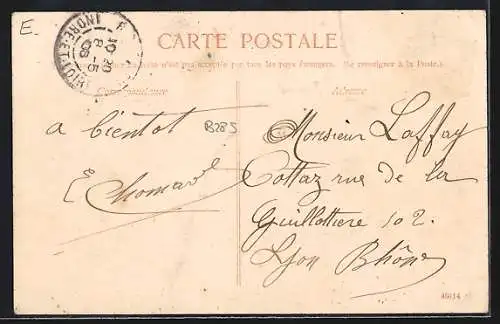 E.
INDRE-ET-L
10 20
8 - 5
06
CARTE POSTALE
n'est pas acceptée par tous les pays étrangers. (Se renseigner à la Poste.)
Correspondance
Adresse
a bientot
B285
E Chomard
Monsieur Laffay
Cottaz rue de la
Guillottiere 102.
Lyon Rhône